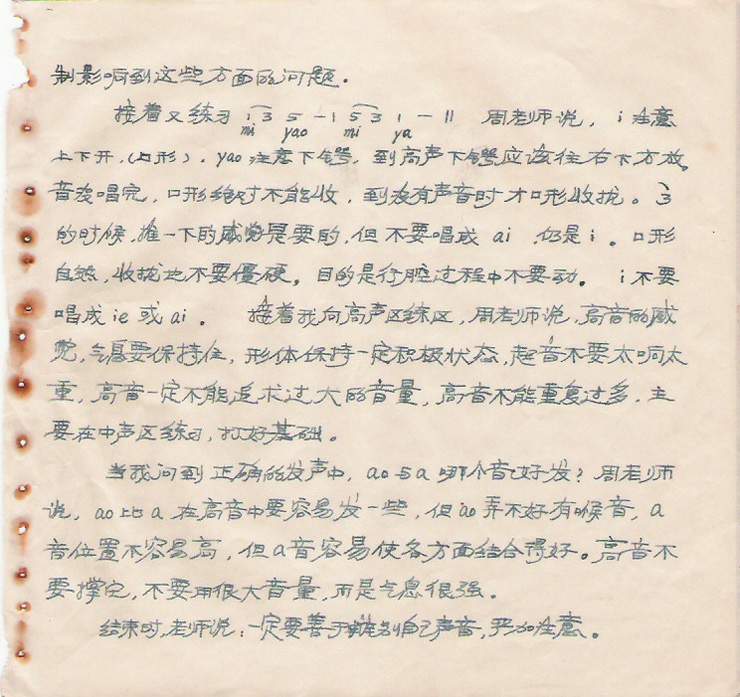 制影响到这些方面的问题.
接着又练习 i 3 5 - 1 5 3 1 - || 周老师说, i 注意
mi yao mi ya
上下开,(口形). yao 注意下腭, 到高声下腭应该往右下方放。
音没唱完, 口形绝对不能收, 到没有声音时才口形收拢。 3
的时候,推一下的感觉是要的,但不要唱成 ai 仍是 i。口形
自然,收拢地不要僵硬。目的是行腔过程中不要动。 i 不要
唱成 ie 或 ai. 接着我向高声区练区, 周老师说, 高音的感
觉,气息要保持住, 形体保持一定积极状态,起音不要太响太
重, 高音一定不能追求过大的音量, 高音不能重复过多, 主
要在中声区练习, 打好基础。
当我问到正确的发声中, ao 与 a 哪个音好发? 周老师
说, ao 比 a 在高音中要容易发一些, 但 ao 弄不好有喉音, a
音位置不容易高, 但 a 音容易使各方面结合得好。高音不
要撑它,不要用很大音量, 而是气息很强。
结束时,老师说:一定要善于辨别自己声音,严加注意。